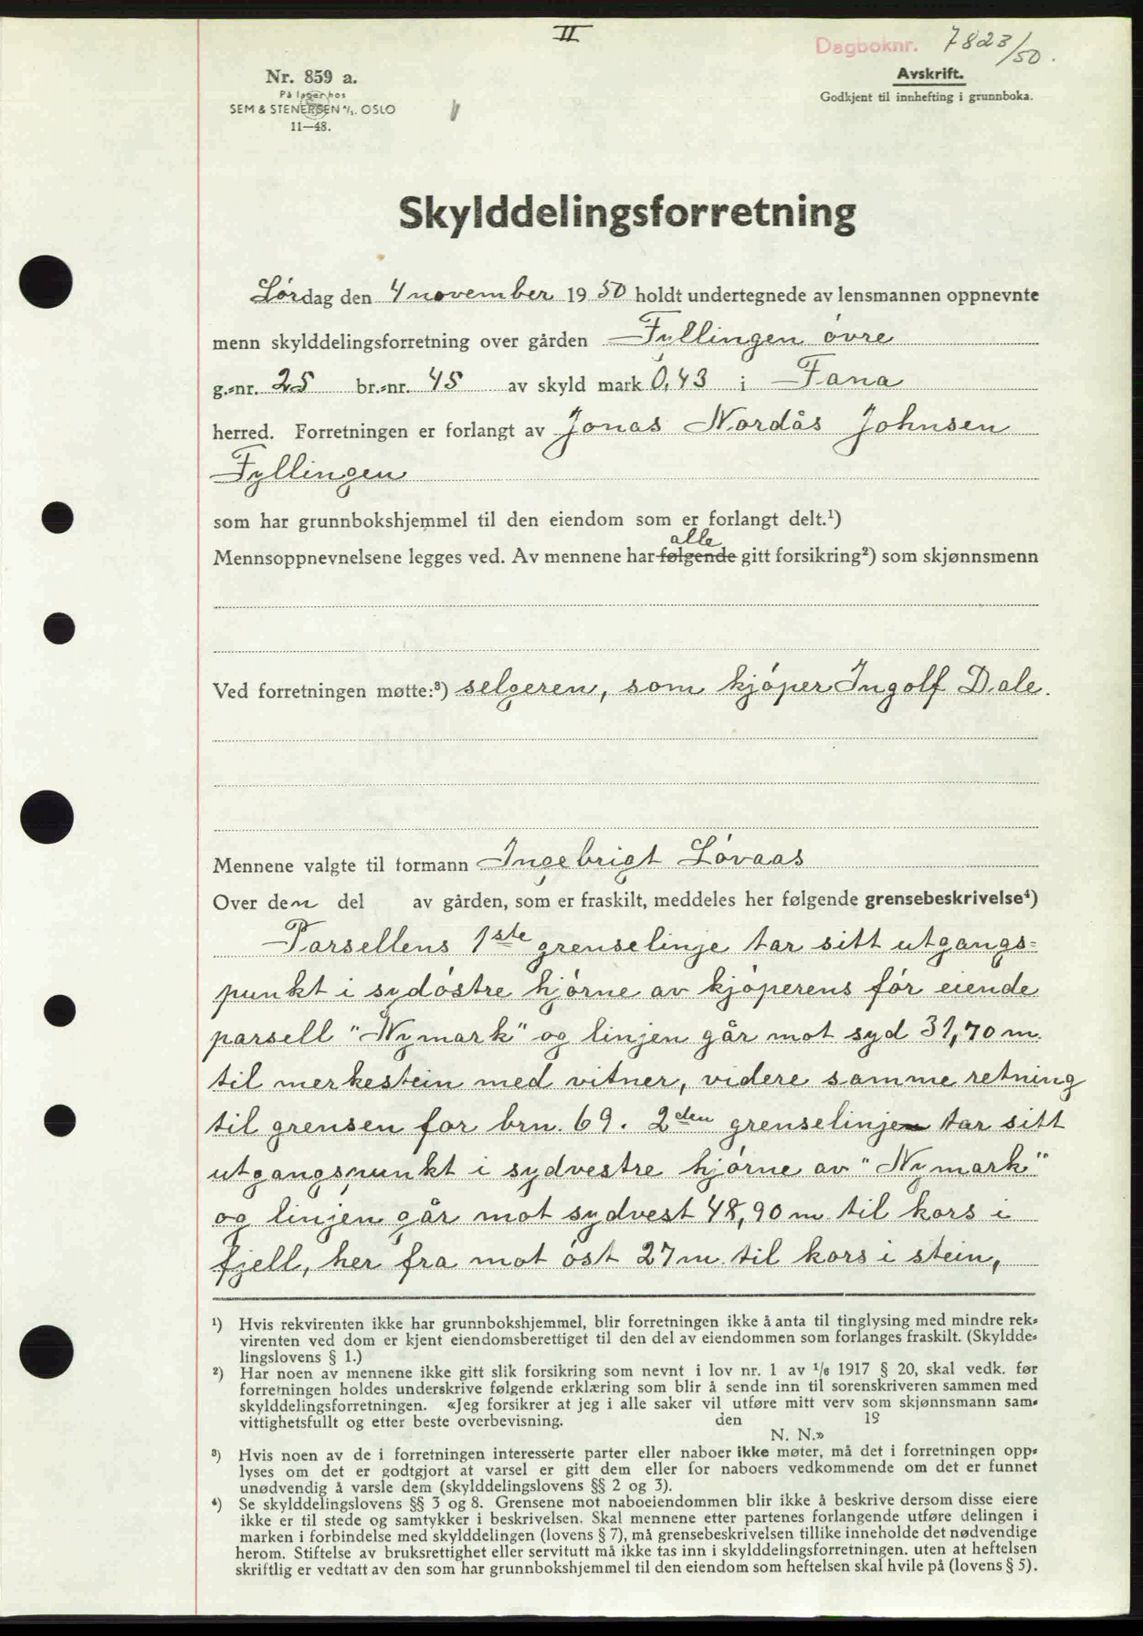 II
Dagboknr. 7823/50.
Nr. 859 a.
På lager hos
SEM & STENERSEN A/S. OSLO
11—48.
Avskrift.
Godkjent til innhefting i grunnboka.
Skylddelingsforretning
Lørdag den 4 november 1950 holdt undertegnede av lensmannen oppnevnte
menn skylddelingsforretning over gården Fyllingen övre
g.-nr. 25 br.-nr. 45 av skyld mark 0,43 i Fana
herred. Forretningen er forlangt av Jonas Nordås Johnsen
Fyllingen
som har grunnbokshjemmel til den eiendom som er forlangt delt.¹)
alle
Mennsoppnevnelsene legges ved. Av mennene har følgende gitt forsikring²) som skjønnsmenn
Ved forretningen møtte:³) selgeren, som kjóper Ingolf Dale.
Mennene valgte til formann Ingebrigt Lóvaas
Over den del av gården, som er fraskilt, meddeles her følgende grensebeskrivelse⁴)
Parsellens 1ste grenselinje tar sitt utgangs=
punkt i sydöstre hjórne av kjóperens fór eiende
parsell "Nymark" og linjen går mot syd 31,70 m.
til merkestein med vitner, videre samme retning
til grensen for brn. 69. 2den grenselinje tar sitt
utgangspunkt i sydvestre hjórne av "Nymark"
og linjen går mot sydvest 48,90 m. til kors i
fjell, her fra mot óst 27 m. til kors i stein,
¹) Hvis rekvirenten ikke har grunnbokshjemmel, blir forretningen ikke å anta til tinglysing med mindre rek-
virenten ved dom er kjent eiendomsberettiget til den del av eiendommen som forlanges fraskilt. (Skyldde-
lingslovens § 1.)
²) Har noen av mennene ikke gitt slik forsikring som nevnt i lov nr. 1 av 1/6 1917 § 20, skal vedk. før
forretningen holdes underskrive følgende erklæring som blir å sende inn til sorenskriveren sammen med
skylddelingsforretningen. «Jeg forsikrer at jeg i alle saker vil utføre mitt verv som skjønnsmann sam-
vittighetsfullt og etter beste overbevisning. den 19
N. N.»
³) Hvis noen av de i forretningen interesserte parter eller naboer ikke møter, må det i forretningen opp-
lyses om det er godtgjort at varsel er gitt dem eller for naboers vedkommende om det er funnet
unødvendig å varsle dem (skylddelingslovens §§ 2 og 3).
⁴) Se skylddelingslovens §§ 3 og 8. Grensene mot naboeiendommen blir ikke å beskrive dersom disse eiere
ikke er til stede og samtykker i beskrivelsen. Skal mennene etter partenes forlangende utføre delingen i
marken i forbindelse med skylddelingen (lovens § 7), må grensebeskrivelsen tillike inneholde det nødvendige
herom. Stiftelse av bruksrettighet eller servitutt må ikke tas inn i skylddelingsforretningen. uten at heftelsen
skriftlig er vedtatt av den som har grunnbokshjemmel til den eiendom som heftelsen skal hvile på (lovens § 5).